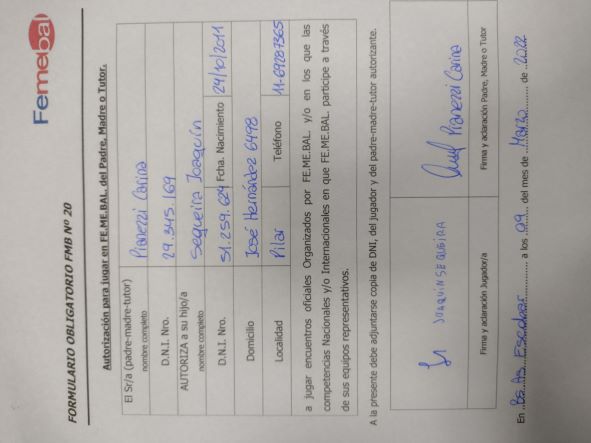 Femebal
FORMULARIO OBLIGATORIO FMB Nº 20
Autorización para jugar en FE.ME.BAL. del Padre, Madre o Tutor.
El Sr/a (padre-madre-tutor) Pianezzi Carina
nombre completo
D.N.I. Nro. 29.345.169
AUTORIZA a su hijo/a Sequeira Joaquín
nombre completo
D.N.I. Nro. 51.259.624 Fcha. Nacimiento 24/10/2011
Domicilio José Hernández 6498
Localidad Pilar Teléfono 11-69287365
a jugar encuentros oficiales Organizados por FE.ME.BAL. y/o en los que las
competencias Nacionales y/o Internacionales en que FE.ME.BAL. participe a través
de sus equipos representativos.
A la presente debe adjuntarse copia de DNI, del jugador y del padre-madre-tutor autorizante.
JOAQUIN SEQUEIRA Pianezzi Carina
Firma y aclaración Jugador/a Firma y aclaración Padre, Madre o Tutor
En Bs As Escobar a los 09 del mes de Marzo de 2022